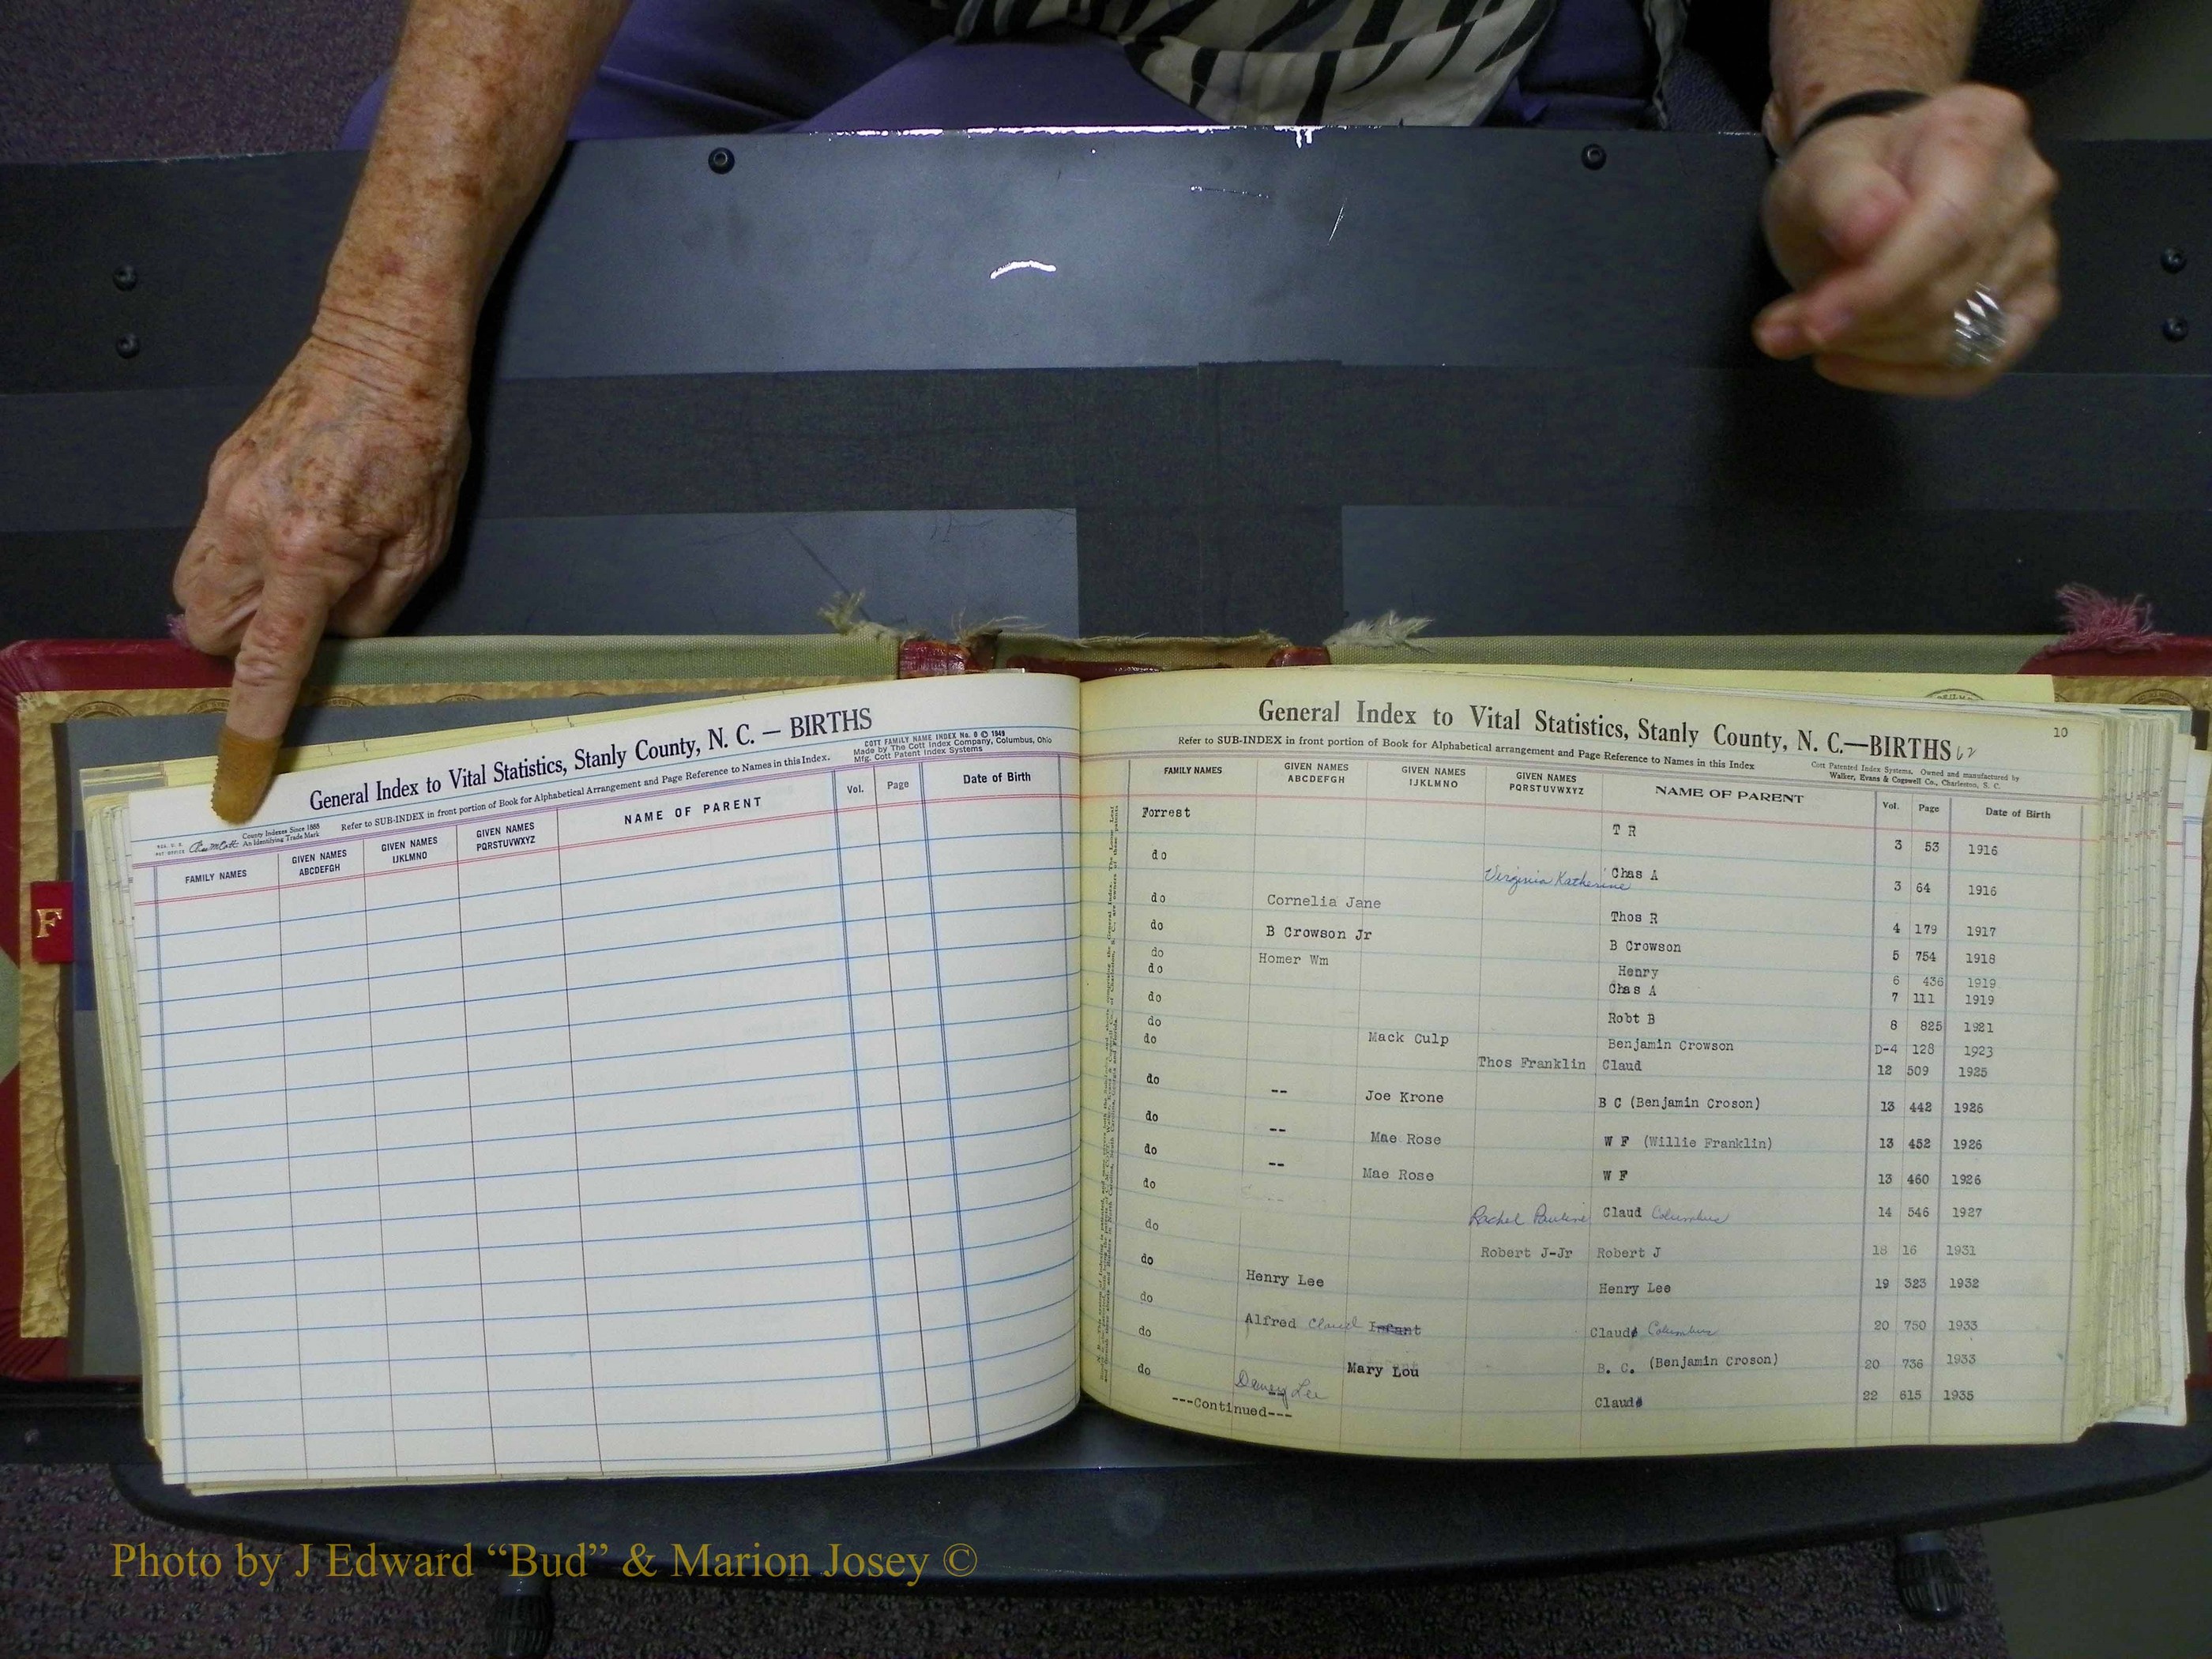 F
General Index to Vital Statistics, Stanly County, N. C. — BIRTHS
COTT FAMILY NAME INDEX No. 0 © 1949
Made by The Cott Index Company, Columbus, Ohio
Mfg. Cott Patent Index Systems
County Indexes Since 1888
An Identifying Trade Mark
Refer to SUB-INDEX in front portion of Book for Alphabetical Arrangement and Page Reference to Names in this Index.
FAMILY NAMES GIVEN NAMES ABCDEFGH GIVEN NAMES IJKLMNO GIVEN NAMES PQRSTUVWXYZ NAME OF PARENT Vol. Page Date of Birth
10
General Index to Vital Statistics, Stanly County, N. C.—BIRTHS 62
Refer to SUB-INDEX in front portion of Book for Alphabetical arrangement and Page Reference to Names in this Index
Cott Patented Index Systems. Owned and manufactured by
Walker, Evans & Cogswell Co., Charleston, S. C.
FAMILY NAMES GIVEN NAMES ABCDEFGH GIVEN NAMES IJKLMNO GIVEN NAMES PQRSTUVWXYZ NAME OF PARENT Vol. Page Date of Birth
Forrest T R 3 53 1916
do Virginia Katherine Chas A 3 64 1916
do Cornelia Jane Thos R 4 179 1917
do B Crowson Jr B Crowson 5 754 1918
do Homer Wm Henry 6 436 1919
do Chas A 7 111 1919
do Robt B 8 825 1921
do Mack Culp Benjamin Crowson D-4 128 1923
do Thos Franklin Claud 12 509 1925
do -- Joe Krone B C (Benjamin Croson) 13 442 1926
do -- Mae Rose W F (Willie Franklin) 13 452 1926
do -- Mae Rose W F 13 460 1926
do Rachel Pauline Claud Columbus 14 546 1927
do Robert J-Jr Robert J 18 16 1931
do Henry Lee Henry Lee 19 323 1932
do Alfred Claud Infant Claude Columbus 20 750 1933
do Mary Lou B. C. (Benjamin Croson) 20 736 1933
do Lee Claude 22 615 1935
---Continued---
Photo by J Edward “Bud” & Marion Josey ©